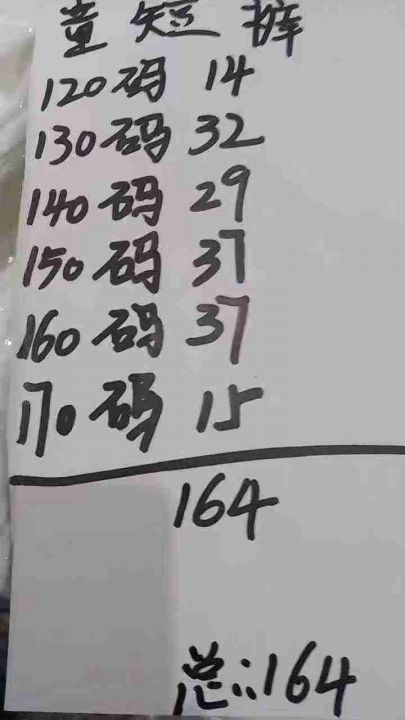 童短裤
120码 14
130码 32
140码 29
150码 37
160码 37
170码 15
164
总:164